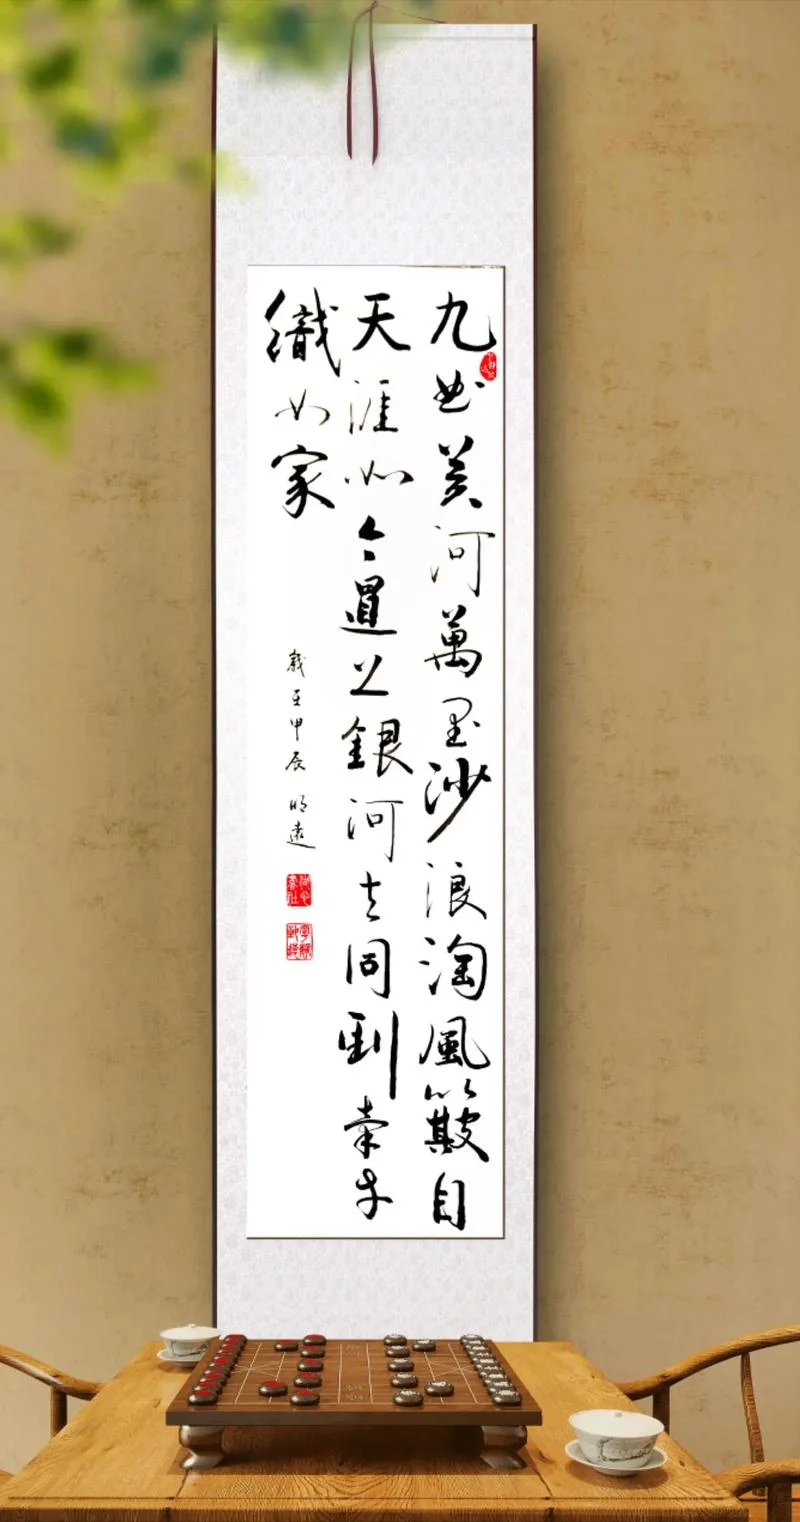 九曲黃河萬里沙浪淘風簸自
天涯如今直上銀河去同到牽牛
織女家
歲在甲辰明遠